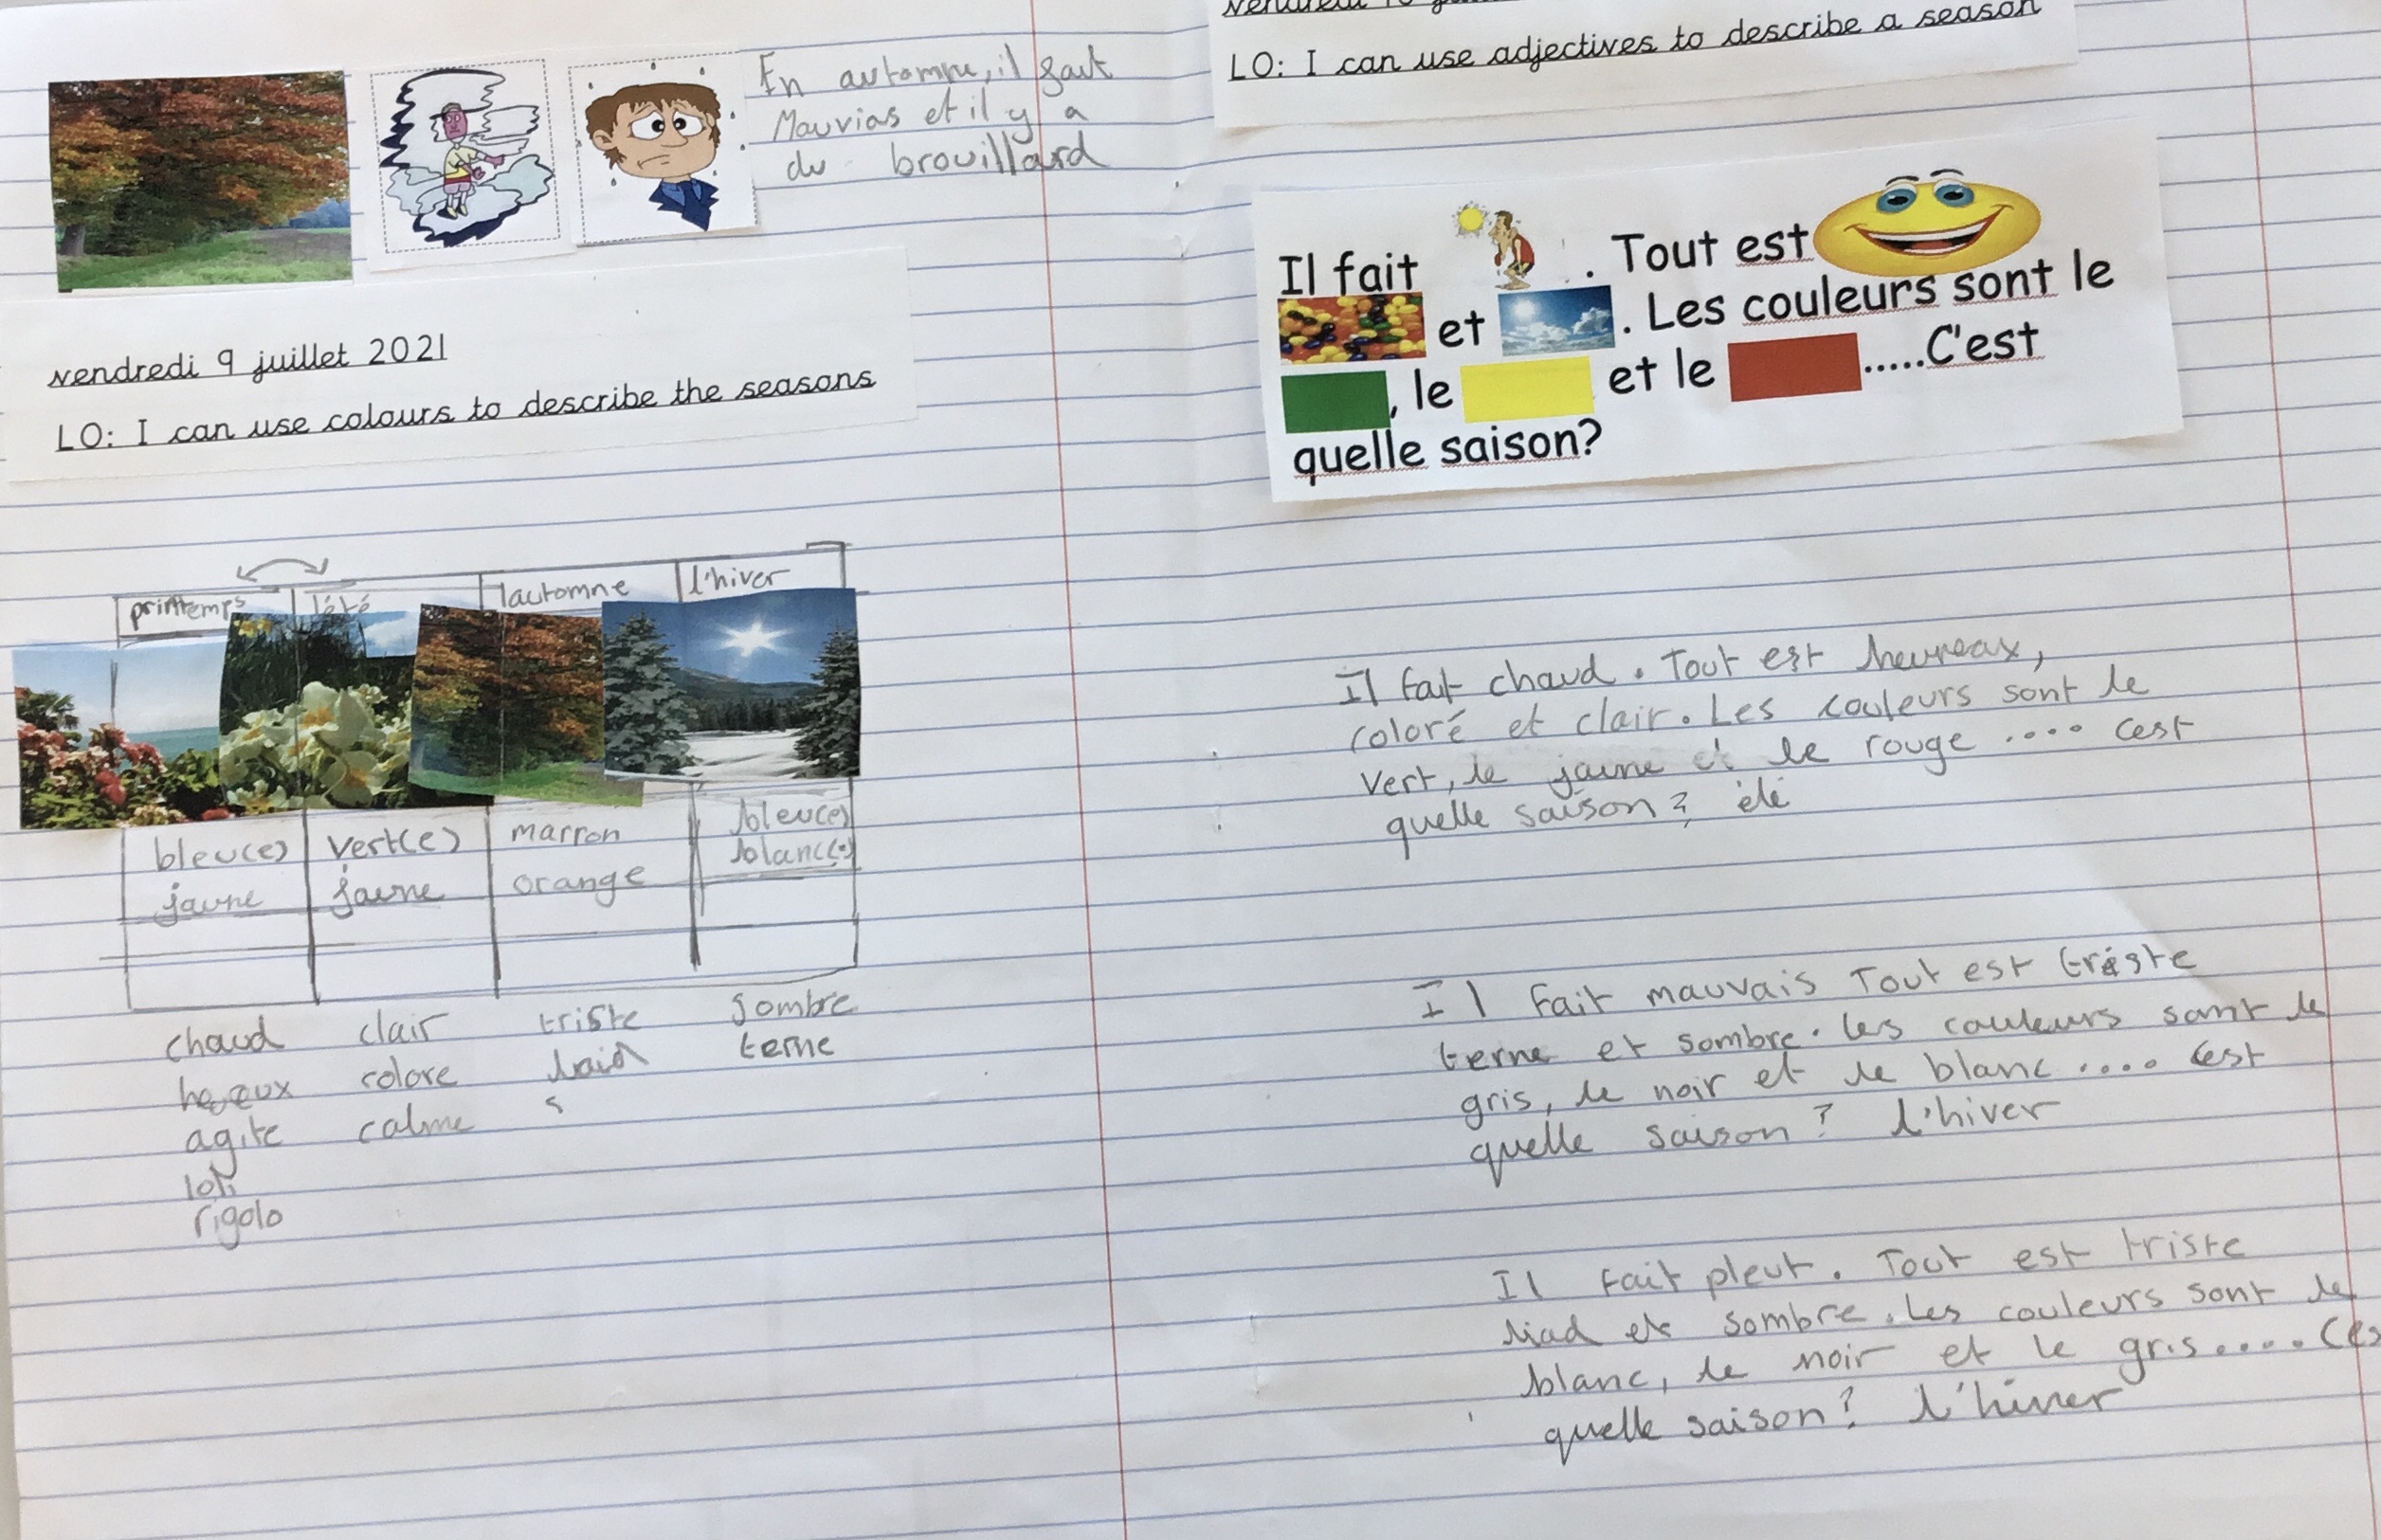 En automne, il fait
Mauvias et il y a
du brouillard
vendredi 9 juillet 2021
LO: I can use colours to describe the seasons
printemps
l'été
lautomne
l'hiver
bleu(e)
jaune
vert(e)
jaune
marron
orange
bleu(e)
blanc(e)
chaud
heueux
agite
clair
colore
calme
triste
laid
s
sombre
terne
rigolo
vendredi
LO: I can use adjectives to describe a season
Il fait . Tout est
et . Les couleurs sont le
, le et le .....C'est
quelle saison?
Il fait chaud. Tout est heureax,
coloré et clair. Les couleurs sont le
vert, le jaune et le rouge .... cest
quelle saison? été
Il fait mauvais Tout est triste
terne et sombre. les couleurs sont le
gris, le noir et le blanc .... cest
quelle saison? l'hiver
Il fait pleut. Tout est triste
liad et sombre. Les couleurs sont le
blanc, le noir et le gris.... Ces
quelle saison? l'hiver